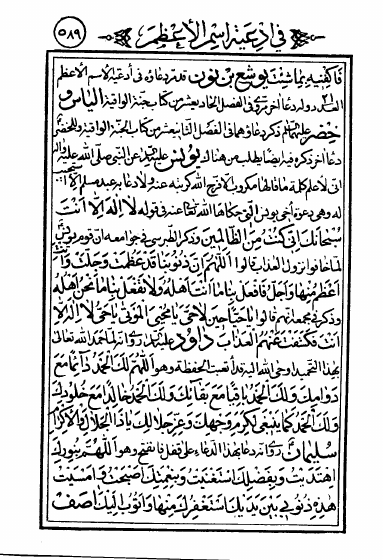 في ادعية اسم الأعظم ٥٨٩
فاكفنيه بما شئت يوشع بن نون قد تر دعاؤه في أدعية الاسم الأعظم
دعا آخر في الفصل من كتاب جنة الواقية الياس و
خضر عليهما ذكر دعاؤهما في الفصل من كتاب الجنة الواقية وللخضر
دعا آخر ذكره فيه ايضا يطلب من هناك يونس عن النبي صلى الله عليه واله
اني لأعلم كلمة ما قالها مكروب الا فرج الله كربته عنه ولا دعا بها عبد مسلم الا
له وهي دعوة أخي يونس التي حكاها الله تعالى عنه في قوله لا اله الا انت
سبحانك اني كنت من الظالمين وذكر الطبرسي في جوامعه ان قوم يونس
لما خافوا نزول العذاب قالوا اللهم ان ذنوبنا قد عظمت وجلت وانت
اعظم منها واجل فافعل بنا ما انت اهله ولا تفعل بنا ما نحن اهله
وذكر في مجمعه انهم قالوا يا حي حين لا حي يا محيي الموتى يا حي لا اله الا
انت فكشف عنهم العذاب داود عليه انه حمد الله تعالى
بهذا التحميد فاوحى الله اليه قد اتعبت الحفظة وهو اللهم لك الحمد دائما مع
دوامك ولك الحمد باقيا مع بقائك ولك الحمد خالدا مع خلودك
ولك الحمد كما ينبغي لكرم وجهك وعز جلالك يا ذا الجلال والاكرام
سليمان انه دعا بهذا الدعاء على قفل فانفتح وهو اللهم بنورك
اهتديت وبفضلك استغنيت وبنعمتك اصبحت وامسيت
هذه ذنوبي بين يديك استغفرك منها واتوب اليك اصف